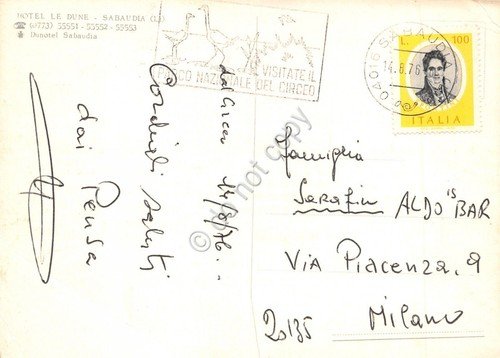 HOTEL LE DUNE - SABAUDIA (LT)
☎ (0773) 55551 - 55552 - 55553
Dunotel Sabaudia
VISITATE IL
PARCO NAZIONALE DEL CIRCEO
04016 SABAUDIA
14.8.76
L. 100
ITALIA
dal Circeo 14/8/76..
Cordiali saluti
dai Pensa
famiglia
Serafin ALDO'S BAR
VIA PIACENZA, 9
20135 MILANO
do not copy